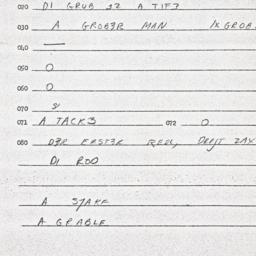 020 DI GRUB IZ A TIF?
030 A GROBER MAN /A GROB
040 —
050 O
060 O
070
071 A TACKS 072 O
080 DER ERSTER REDL, DREJT ZAX
DI ROD
A STAKE
A GRABLE